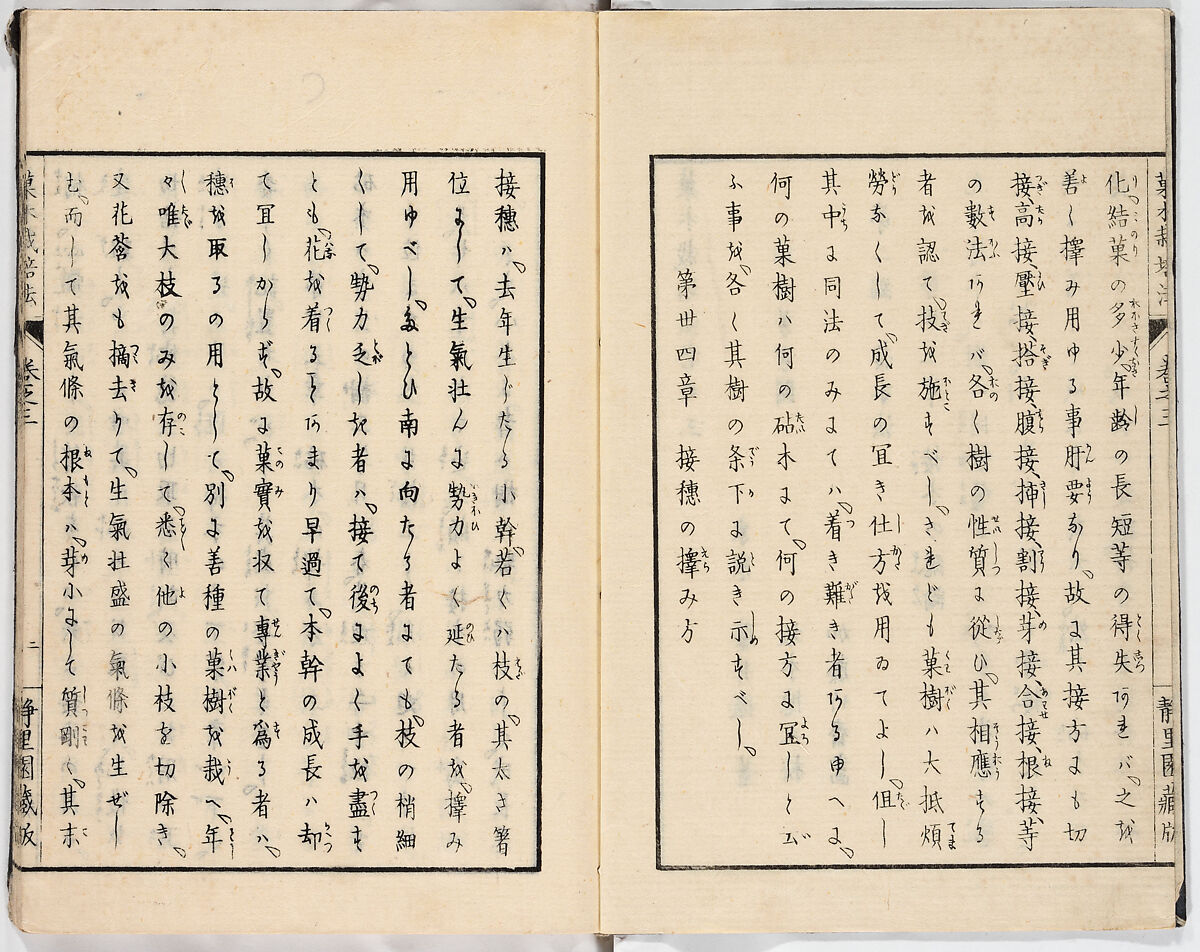 菓木栽培法
卷之三
靜里園藏版
化り、結菓の多少、年齢の長短等の得失アレバ、之を
善く擇み用ゆる事肝要なり、故に其接方にも切
接高接壓接搭接腹接、挿接、割接、芽接、合接、根接、等
の數法アレバ各く樹の性質に從ひ、其相應する
者を認て、技を施すべし、されども菓樹ハ大抵煩
勞なくして、成長の冝き仕方を用ゐてよし、伹し
其中に同法のみにてハ、着き難き者ある申へに、
何の菓樹ハ何の砧木にて、何の接方に冝しと云
ふ事を、各く其樹の条下に説き示すべし、
第丗四章 接穗の擇み方
接穗ハ、去年生じたる小幹、若くハ枝の、其太さ箸
位にして、生氣壮んに勢力よく延たる者を、擇み
用ゆべし、たとひ南に向たる者にても、枝の梢細
くして、勢力乏しき者ハ、接て後によく手を盡す
とも、花を着ることあまり早過て、本幹の成長ハ却
て冝しからず、故に菓實を収て專業と爲る者ハ、
穗を取るの用として、別に善種の菓樹を栽へ、年
々唯大枝のみを存して、悉く他の小枝を切除き、
又花莟をも摘去りて、生氣壮盛の氣條を生ぜし
む、而して其氣條の根本ハ、芽小にして質剛く、其末
菓木栽培法
卷之三
二
靜里園藏版